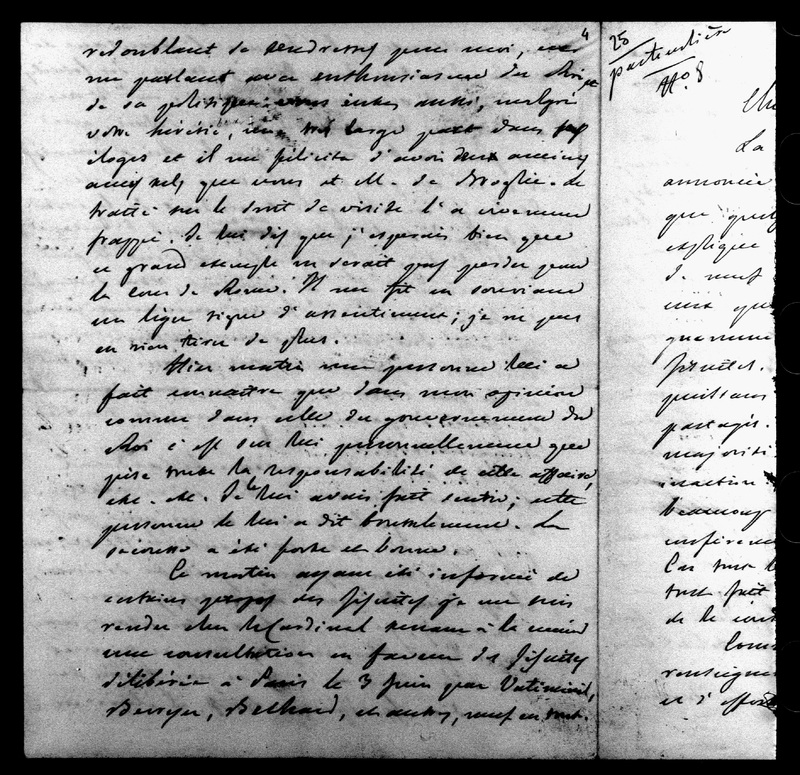 4
redoublant de tendresses pour moi, et
me parlant avec enthousiasme du Roi et
de sa politique. vous entrez aussi, malgré
votre hérésie, une très large part dans ses
éloges et il me félicita d'avoir deux amis
tels que vous et M. de Broglie. Le
traité sur le droit de visite l'a vivement
frappé. Je lui dis que j'espérais bien que
ce grand exemple ne serait pas perdu pour
la cour de Rome. Il me fit en souriant
un léger signe d'assentiment; je ne pus
en rien tirer de plus.
Hier matin une personne lui a
fait connaître que dans mon opinion
comme dans celle du gouvernement du
Roi c'est sur lui personnellement que
pèse toute la responsabilité de cette affaire,
etc. etc. Je le lui avais fait sentir; cette
personne le lui a dit brutalement. La
secousse a été forte et bonne.
Ce matin ayant été informé de
certains propos des Jésuites je me suis
rendu chez le Cardinal tenant à la main
une consultation en faveur des Jésuites
délibérée à Paris le 3 juin par Vatimesnil,
Berryer, Béchard, et autres, neuf en tout.
25
particulière
No. 8
La
annoncée
que
expliquée
de neuf
Jésuites.
partagés.
majorité
inaction
beaucoup
tout fait
de la
renseigne
et d'